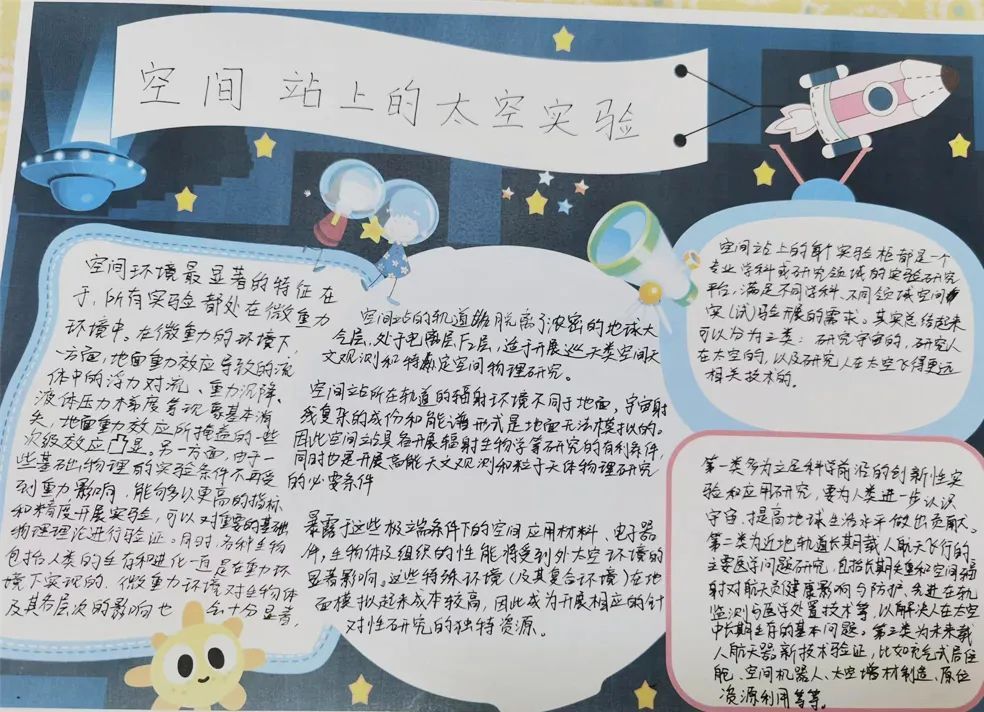 空间站上的太空实验
空间环境最显著的特征在
于,所有实验都处在微重力
环境中。在微重力的环境下,
一方面,地面重力效应导致的流
体中的浮力对流、重力沉降、
液体压力梯度等现象基本消
失,地面重力效应所掩盖的一些
次级效应凸显。另一方面,由于一
些基础物理的实验条件不再受
到重力影响,能够以更高的指标
和精度开展实验,可以对重要的基础
物理理论进行验证。同时,各种生物
包括人类的生存和进化一直是在重力环
境下实现的,微重力环境对生物体
及其各层次的影响也十分显著,
空间站的轨道脱离了浓密的地球大
气层,处于电离层F2层,适于开展这类空间天
文观测和特定空间物理研究。
空间站所在轨道的辐射环境不同于地面,宇宙射
线复杂的成份和能谱形式是地面无法模拟的。
因此空间站具备开展辐射生物学等研究的有利条件,
同时也是开展高能天文观测和粒子天体物理研究
的必要条件
暴露于这些极端条件下的空间应用材料、电子器
件,生物体及组织的性能将受到外太空环境的
显著影响。这些特殊环境(及其复合环境)在地
面模拟起来成本较高,因此成为开展相应的针
对性研究的独特资源。
空间站上的每个实验柜都是一个
专业学科或研究领域的实验研究
平台,满足不同学科、不同领域空间
实(试)验开展的需求。其实总结起来
可以分为三类:研究宇宙的,研究人
在太空的,以及研究人在太空飞得更远
相关技术的。
第一类多为立足科学前沿的创新性实
验和应用研究,要为人类进一步认识
宇宙、提高地球生活水平做出贡献。
第二类为近地轨道长期载人航天飞行的
主要医学问题研究,包括长期失重和空间辐
射对航天员健康影响与防护、先进在轨
监测与医学处置技术等,以解决人在太空
中长期生存的基本问题。第三类为未来载
人航天器新技术验证,比如充气式居住
舱、空间机器人、太空增材制造、原位
资源利用等等。